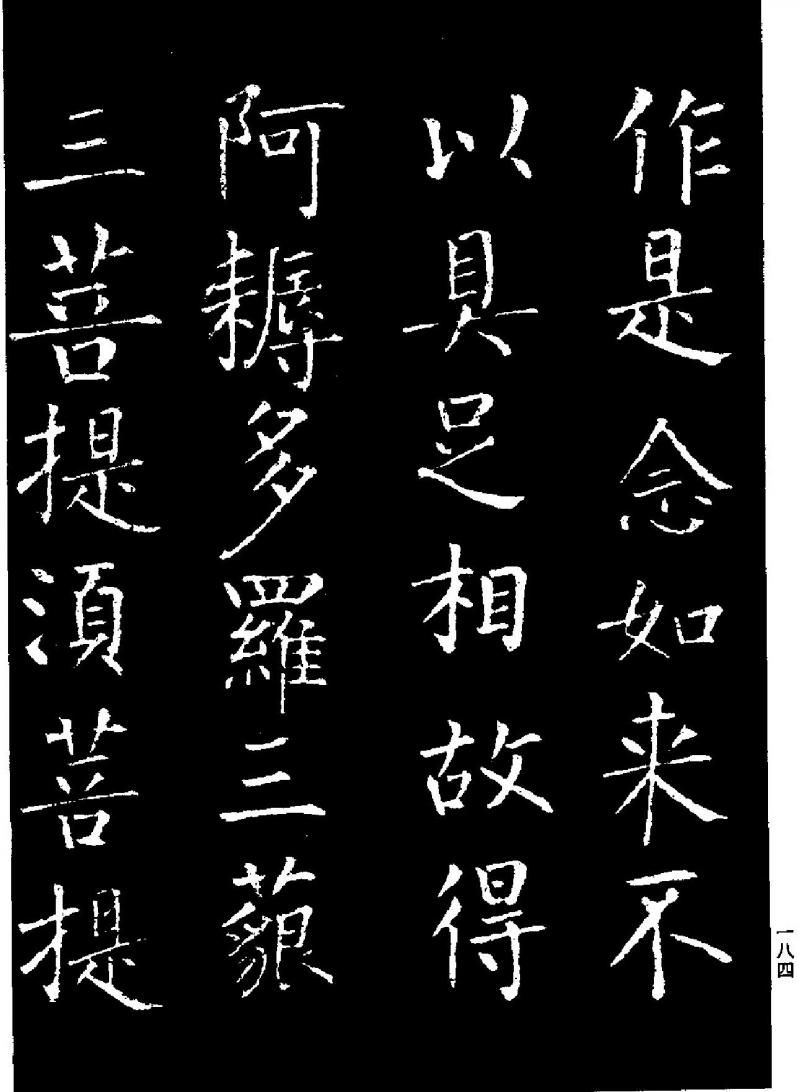 作是念如来不
以具足相故得
阿耨多羅三藐
三菩提須菩提
一八四